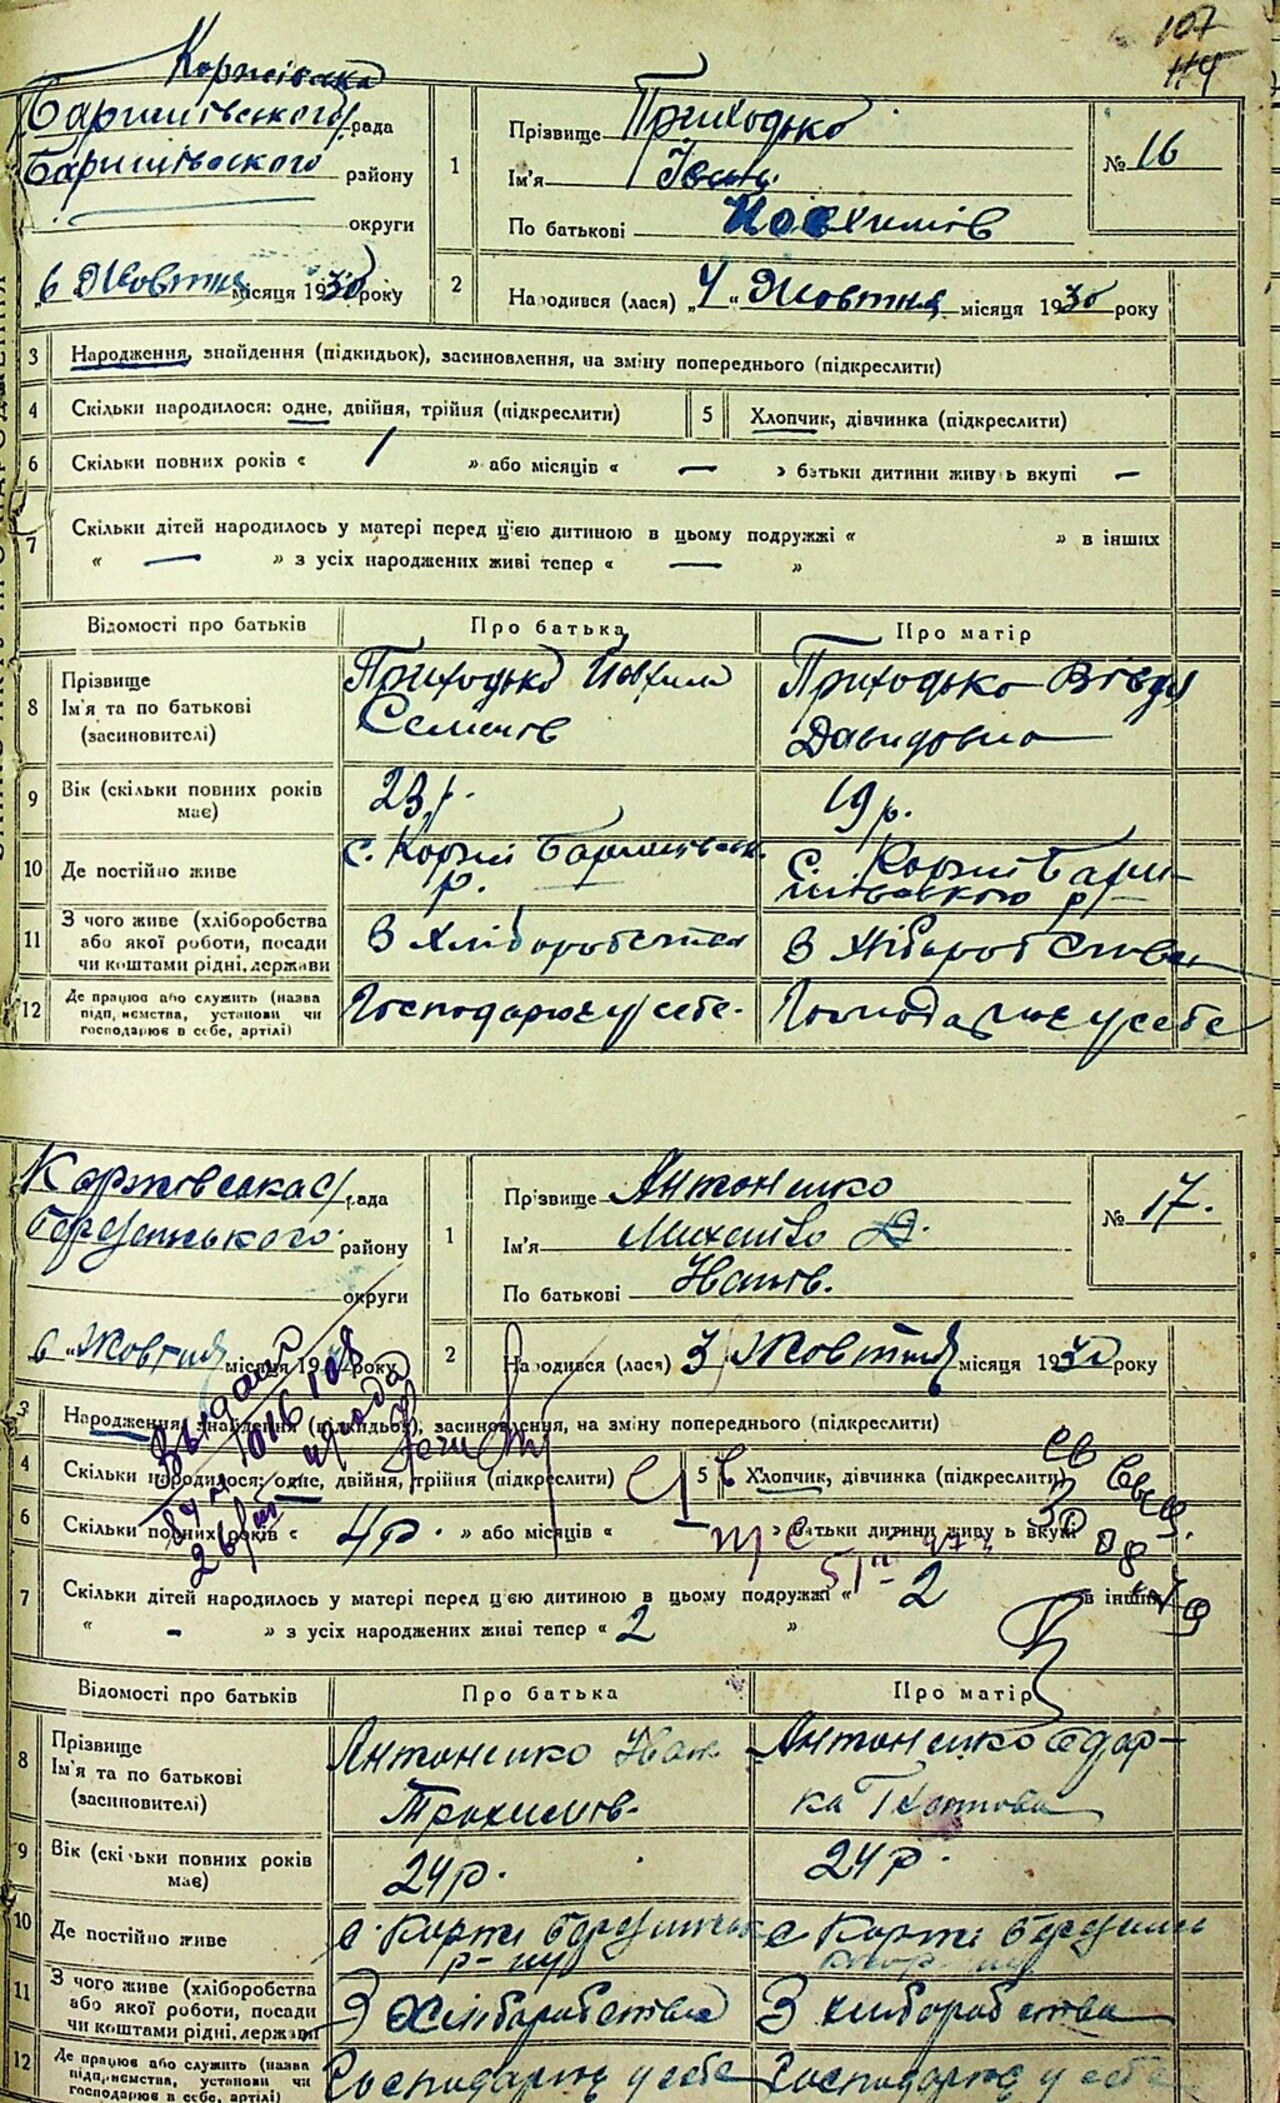 107
114
Коржівська
Баришівського рада
Баришівського району
округи
„6 Жовтня місяця 1930 року
1 Прізвище Приходько
Ім'я Іван
По батькові Йовхимів
№ 16
2 Народився (лася) „4 “ Жовтня місяця 1930 року
3 Народження, знайдення (підкидьок), засиновлення, на зміну попереднього (підкреслити)
4 Скільки народилося: одне, двійня, трійня (підкреслити) 5 Хлопчик, дівчинка (підкреслити)
6 Скільки повних років « 1 » або місяців « — » батьки дитини живуть вкупі —
7 Скільки дітей народилось у матері перед цією дитиною в цьому подружжі « » в інших
« — » з усіх народжених живі тепер « — »
Відомості про батьків Про батька Про матір
8 Прізвище
Ім'я та по батькові
(засиновителі)
Приходько Йовхим
Семенів
Приходько Вівдя
Давидовна
9 Вік (скільки повних років
має)
23 р. 19 р.
10 Де постійно живе
с. Коржі Баришівськ.
р.
с. Коржі Бари-
шівського р.
11 З чого живе (хліборобства
або якої роботи, посади
чи коштами рідні, держави
З хліборобства З хліборобства
12 Де працює або служить (назва
підприємства, установи чи
господарює в себе, артілі)
Господарює у себе. Господарює у себе
Коржівська с/рада
Березанського району
округи
„6 “ Жовтня місяця 19 року
1 Прізвище Антоненко
Ім'я Михайло
По батькові Іванів.
№ 17.
2 Народився (лася) 3 Жовтня місяця 1930 року
3 Народження, знайдення (підкидьок), засиновлення, на зміну попереднього (підкреслити)
4 Скільки народилося: одне, двійня, трійня (підкреслити) 5 Хлопчик, дівчинка (підкреслити)
6 Скільки повних років « 4 р. » або місяців « — » батьки дитини живуть вкупі
7 Скільки дітей народилось у матері перед цією дитиною в цьому подружжі « 2 в інших
« - » з усіх народжених живі тепер « 2 »
Відомості про батьків Про батька Про матір
8 Прізвище
Ім'я та по батькові
(засиновителі)
Антоненко Іван
Трохимів.
Антоненко Одар-
ка
9 Вік (скільки повних років
має)
24 р. 24 р.
10 Де постійно живе
с. Коржі Березанськ
р-ну
с Коржі Березансь
11 З чого живе (хліборобства
або якої роботи, посади
чи коштами рідні, держави
З хліборобства З хліборобства
12 Де працює або служить (назва
підприємства, установи чи
господарює в себе, артілі)
Господарює у себе Господарює у себе